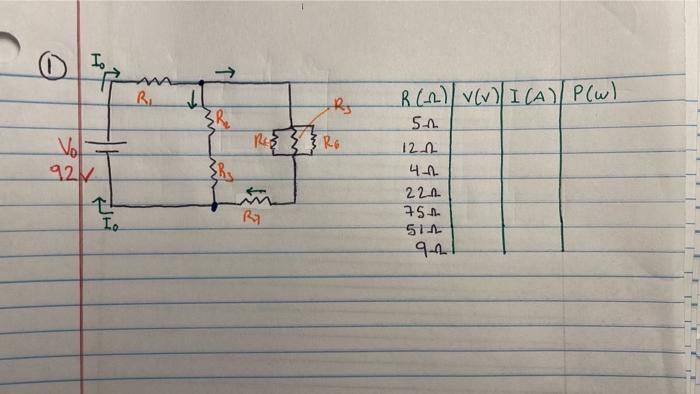 1
I₀
R₁
R₂
R₅
R₄
R₆
V₀
92V
R₃
R₇
I₀
R(Ω) V(V) I(A) P(W)
5Ω
12Ω
4Ω
22Ω
75Ω
51Ω
9Ω